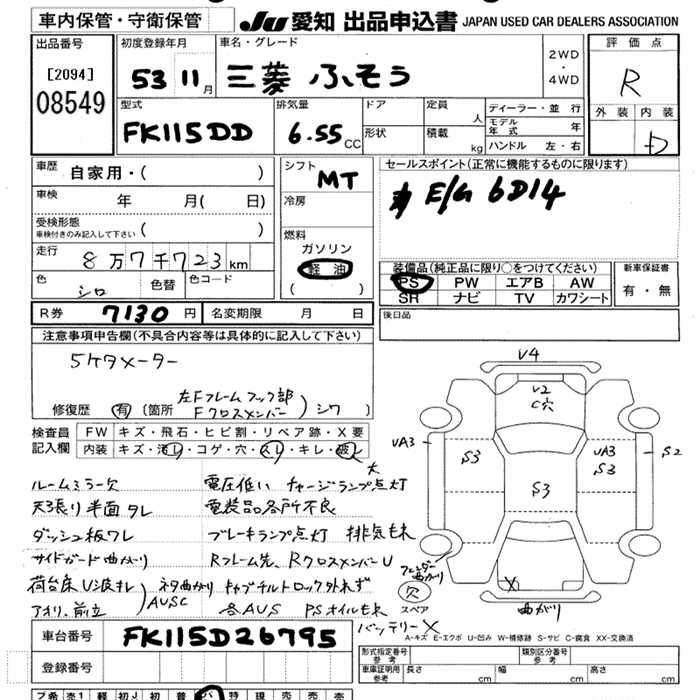 車内保管・守衛保管 JU 愛知 出品申込書 JAPAN USED CAR DEALERS ASSOCIATION
出品番号
[2094]
08549
初度登録年月
53 11月
車名・グレード
三菱 ふそう
2WD
・
4WD
評価点
R
外装 内装
D
型式
FK115DD
排気量
6.55 CC
ドア
形状
定員 人
積載 kg
ディーラー・並行
モデル年式 年
ハンドル 左・右
車歴 自家用・( )
車検 年 月( 日)
受検形態
車検付きのみ記入して下さい ( )
走行 8万7千723km
色 シロ 色替 色コード
シフト MT
冷房
燃料
ガソリン
軽油
( )
セールスポイント(正常に機能するものに限ります)
E/G 6D14
装備品(純正品に限り○をつけてください)
PS PW エアB AW
SR ナビ TV カワシート
新車保証書
有・無
R券 7130円 名変期限 月 日
後日品
注意事項申告欄(不具合内容等は具体的に記入して下さい)
5ケタメーター
修復歴 有 (箇所 左Fフレームフック部 Fクロスメンバー)シワ )
検査員記入欄
FW キズ・飛石・ヒビ割・リペア跡・X要
内装 キズ・汚レ・コゲ・穴・スレ・キレ・破レ
大
ルームミラー欠 電圧低い チャージランプ点灯
天張り半面タレ 電装品各所不良
ダッシュ板ワレ ブレーキランプ点灯 排気もれ
サイドガード曲がり Rフレーム先、RクロスメンバーU
荷台床U浪キレ ネタ曲がり キャブチルトロック外れず
アオリ、前立 AUSC 各AUS PSオイルもれ
バッテリーX
V4
V2
C穴
VA3
S3
VA3
S3
S2
S3
X
フェンダー曲がり
欠
スペア
曲がり
A-キズ E-エクボ U-凹み W-補修跡 S-サビ C-腐食 XX-交換済
車台番号 FK115D26795
登録番号
形式指定番号 参考
類別区分番号 参考
車庫証明用 参考 長さ cm 幅 cm 高さ cm
プ希 売1 軽 初J 初 普 バ 特 現 売 売 売